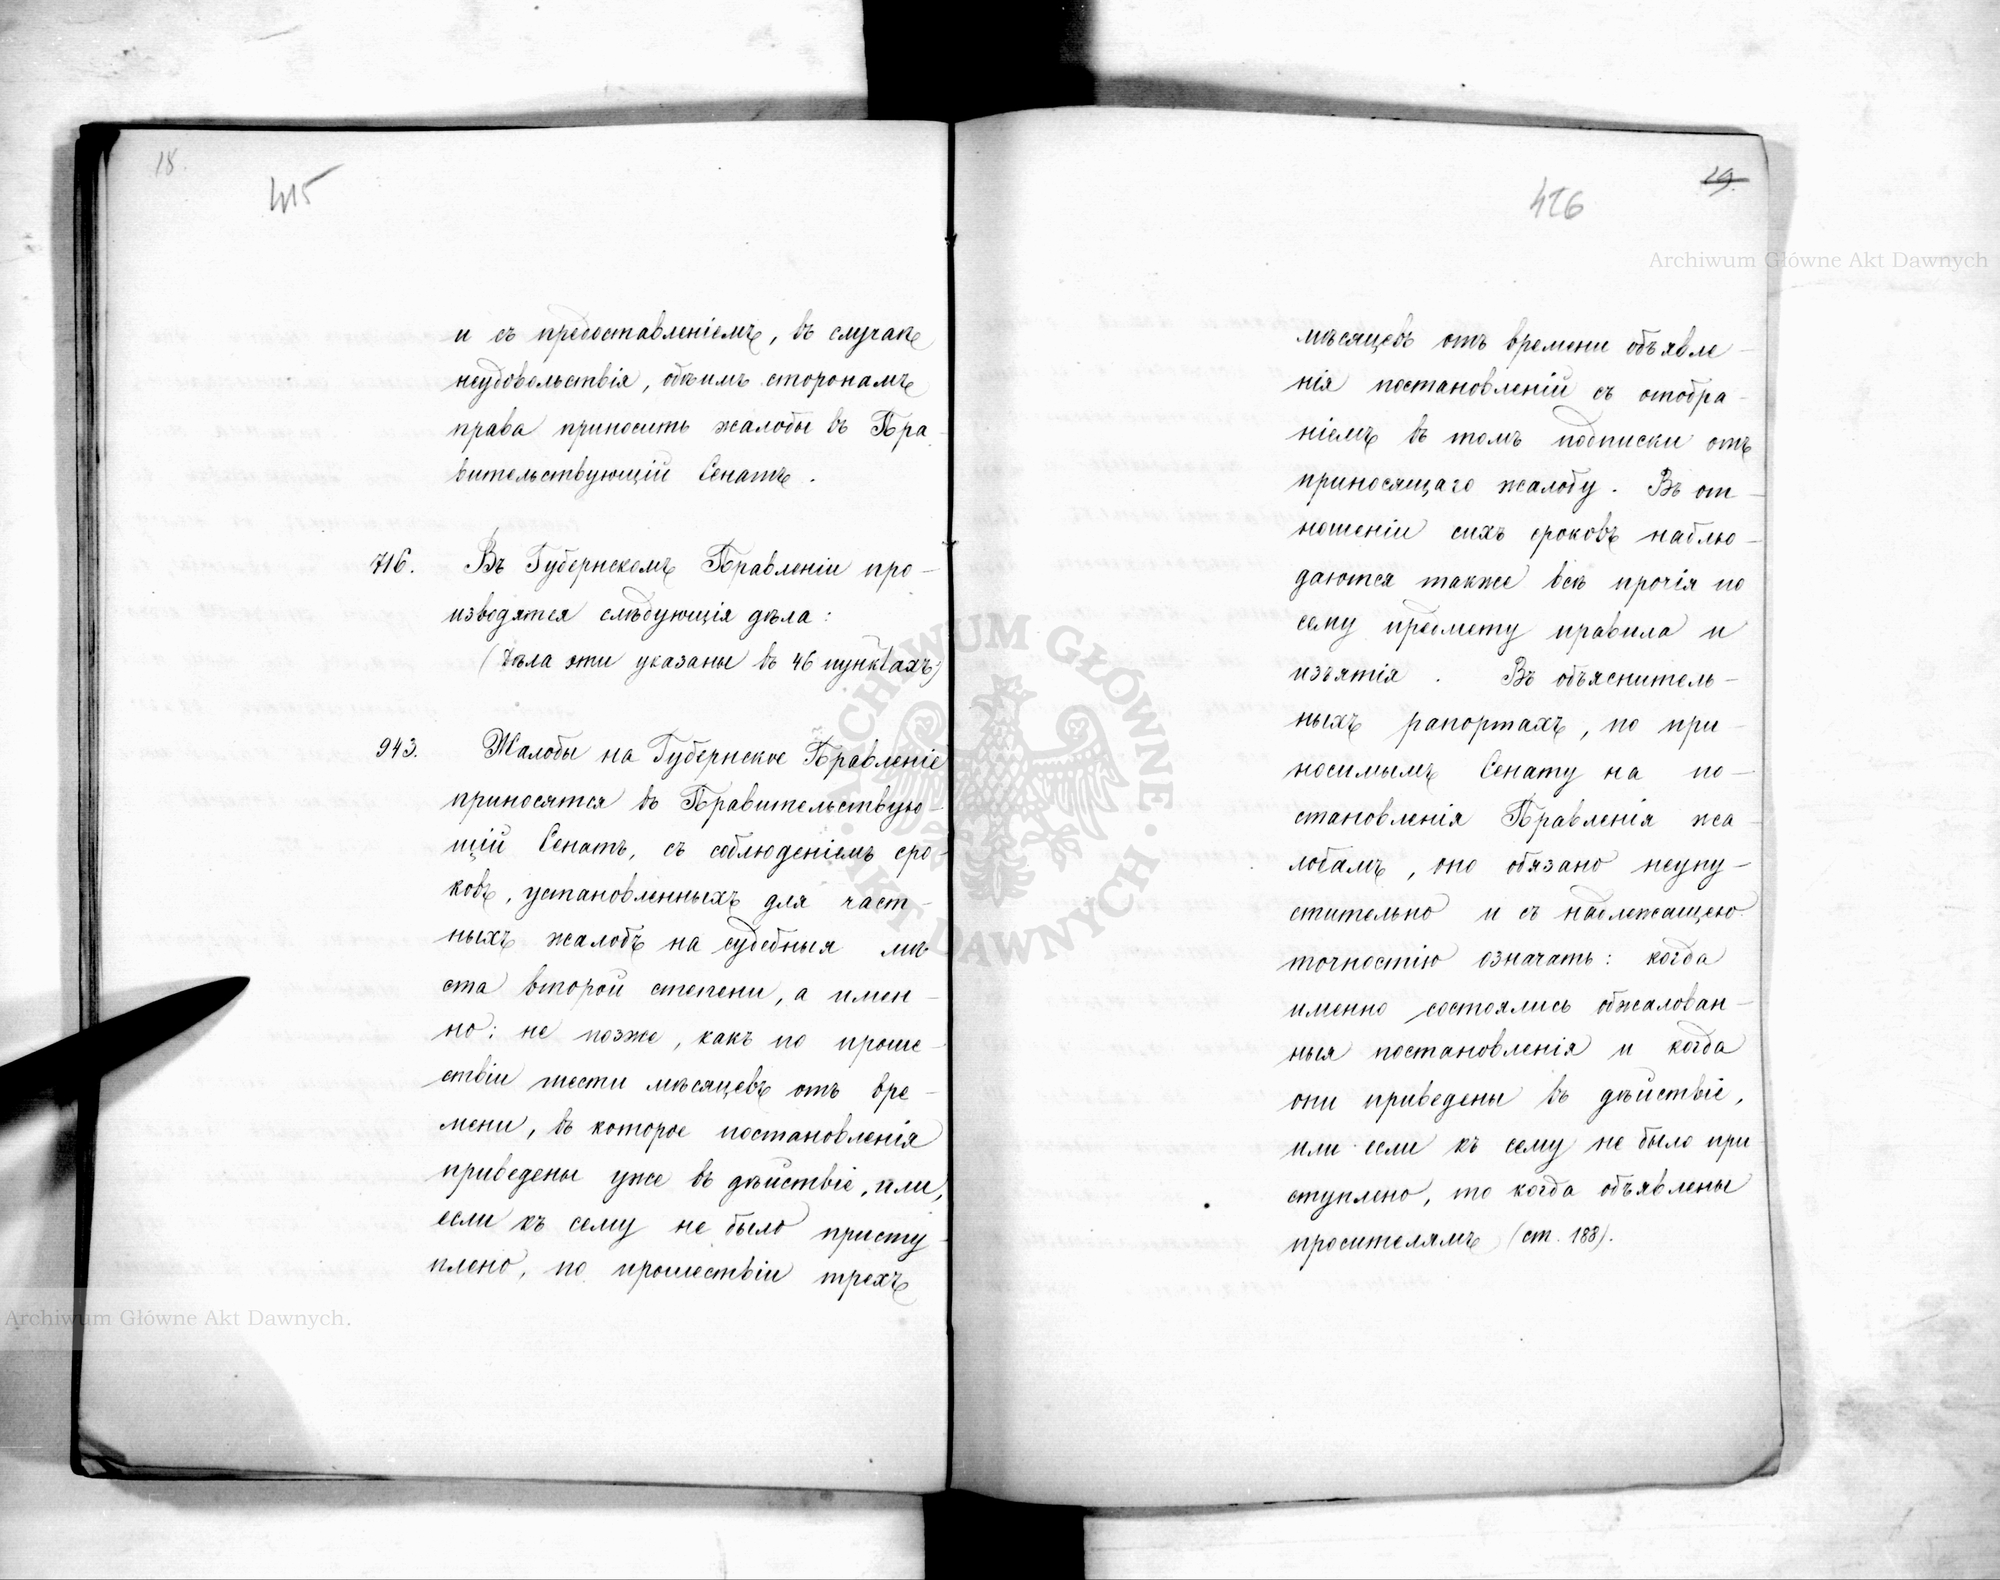 18.
415
и съ предоставленіемъ, въ случаѣ
неудовольствія, обѣимъ сторонамъ
права приносить жалобы въ Пра
вительствующій Сенатъ.
716. Въ Губернскомъ Правленіи про-
изводятся слѣдующія дѣла:
(Дѣла эти указаны въ 46 пунктахъ)
943. Жалобы на Губернское Правленіе
приносятся въ Правительствую-
щій Сенатъ, съ соблюденіемъ сро-
ковъ, установленныхъ для част-
ныхъ жалобъ на судебныя мѣ
ста второй степени, а имен-
но: не позже, какъ по проше-
ствіи шести мѣсяцевъ отъ вре-
мени, въ которое постановленія
приведены уже въ дѣйствіе, или,
если къ сему не было присту
плено, по прошествіи трехъ
19.
416
Archiwum Główne Akt Dawnych
мѣсяцевъ отъ времени объявле-
нія постановленій съ отобра-
ніемъ въ томъ подписки отъ
приносящаго жалобу. Въ от-
ношеніи сихъ сроковъ наблю-
даются также всѣ прочія по
сему предмету правила и
изъятія. Въ объяснитель-
ныхъ рапортахъ, по при-
носимымъ Сенату на по-
становленія Правленія жа-
лобамъ, оно обязано неупу-
стительно и съ надлежащею
точностію означать: когда
именно состоялись обжалован-
ныя постановленія и когда
они приведены въ дѣйствіе,
или если къ сему не было при
ступлено, то когда объявлены
просителямъ (ст. 188).
ARCHIWUM GŁÓWNE · AKT DAWNYCH ·
Archiwum Główne Akt Dawnych.